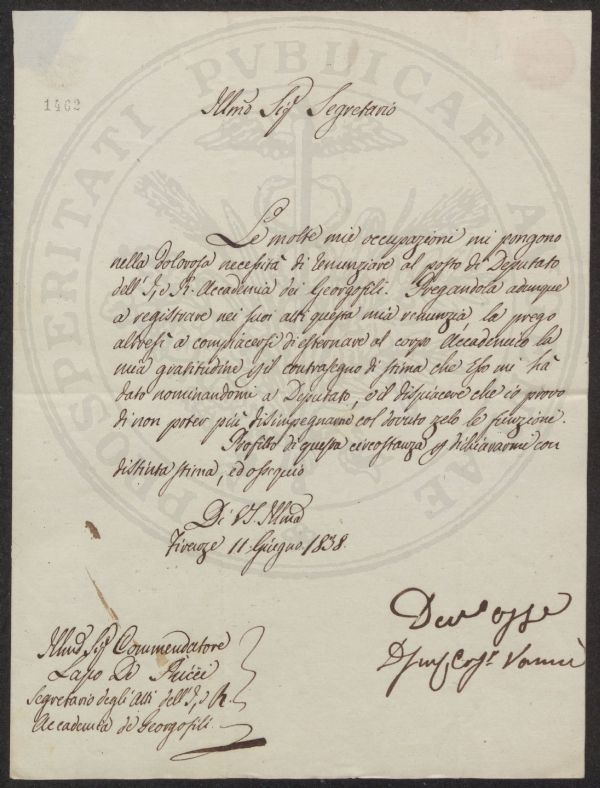 1462
PROSPERITATI PVBLICAE AVGENDAE
Illmo Sigr Segretario
Le molte mie occupazioni mi pongono
nella dolorosa necessità di renunziare al posto di Deputato
dell' I. e R. Accademia dei Georgofili. Pregandola adunque
a registrare nei suoi atti questa mia renunzia la prego
altresì a compiacersi di esternare al corpo Accademico la
mia gratitudine pel contrasegno di stima che esso mi hà
dato nominandomi a Deputato, e il dispiacere che io provo
di non poter più disimpegnarne col dovuto zelo le funzione.
Profitto di questa circostanza p dichiararmi con
distinta stima, ed ossequio
Di VS. Illma
Firenze 11 Giugno 1838.
Devmo osse
Vannii
Illmo Sigr Commendatore
Lapo De Ricci
Segretario degli Atti dell' I. e R.
Accademia de Georgofili.